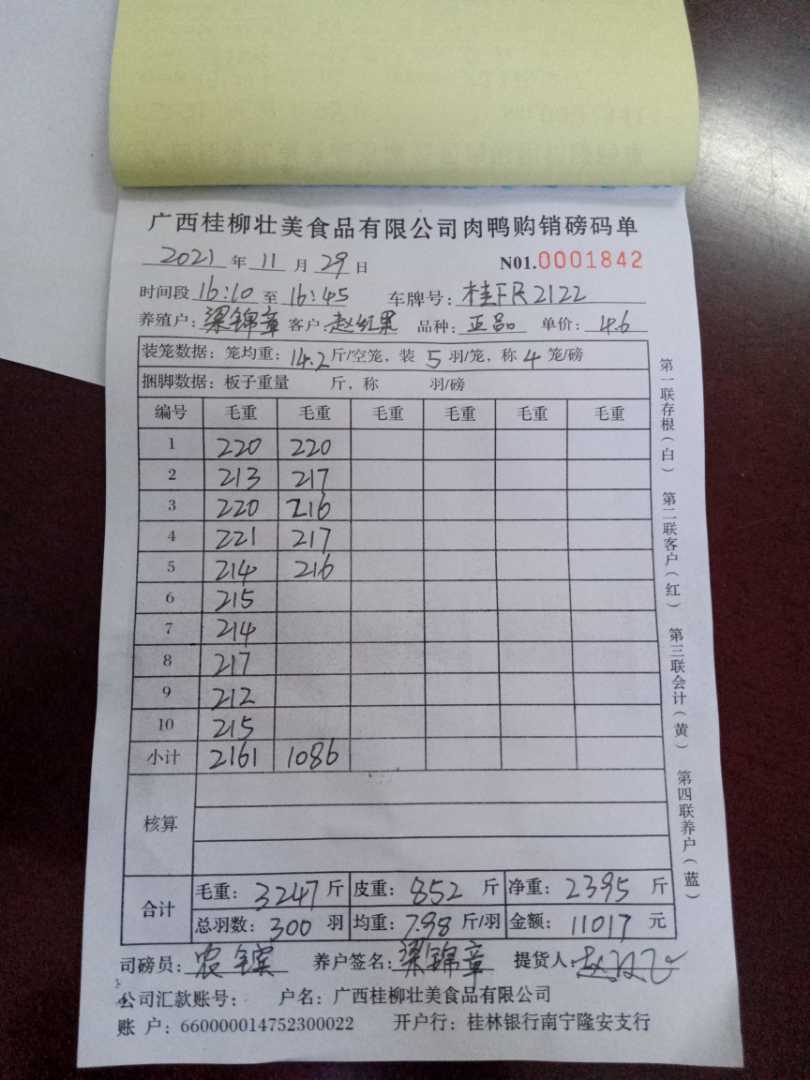 广西桂柳壮美食品有限公司肉鸭购销磅码单
2021 年 11 月 29 日 N01.0001842
时间段 16:10 至 16:45 车牌号: 桂FR2122
养殖户: 梁锦章 客户: 赵红果 品种: 正品 单价: 4.6
装笼数据: 笼均重: 14.2 斤/空笼, 装 5 羽/笼, 称 4 笼/磅
捆脚数据: 板子重量 斤, 称 羽/磅
编号 毛重 毛重 毛重 毛重 毛重 毛重
1 220 220
2 213 217
3 220 216
4 221 217
5 214 216
6 215
7 214
8 217
9 212
10 215
小计 2161 1086
核算
合计 毛重: 3247 斤 皮重: 852 斤 净重: 2395 斤
总羽数: 300 羽 均重: 7.98 斤/羽 金额: 11017 元
司磅员: 农 养户签名: 梁锦章 提货人: 赵
公司汇款账号: 户名: 广西桂柳壮美食品有限公司
账 户: 660000014752300022 开户行: 桂林银行南宁隆安支行
第一联存根(白) 第二联客户(红) 第三联会计(黄) 第四联养户(蓝)